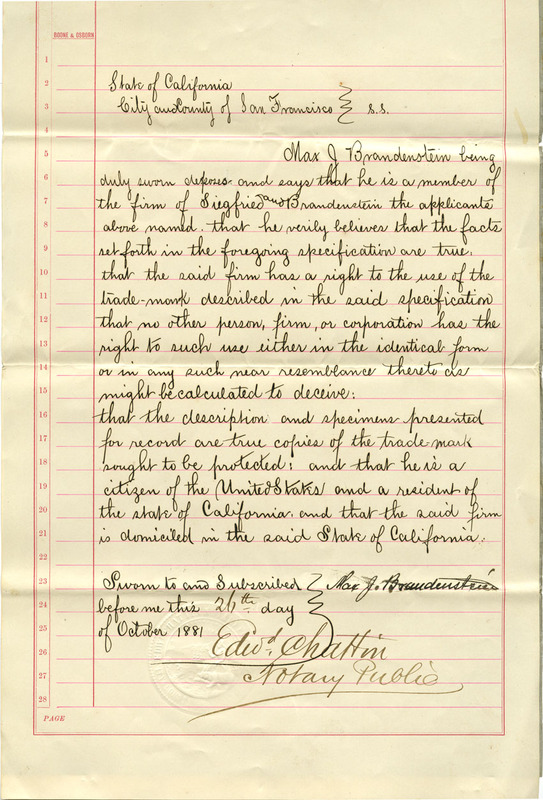 BOONE & OSBORN
1
2 State of California
3 City and County of San Francisco } S.S.
4
5 Max J Brandenstein being
6 duly sworn deposes and says that he is a member of
7 the firm of Siegfried and Brandenstein the applicants
8 above named. that he verily believes that the facts
9 set forth in the foregoing specification are true.
10 that the said firm has a right to the use of the
11 trade-mark described in the said specification
12 that no other person, firm, or corporation has the
13 right to such use either in the identical form
14 or in any such near resemblance thereto as
15 might be calculated to deceive:
16 that the description and specimens presented
17 for record are true copies of the trade-mark
18 sought to be protected: and that he is a
19 citizen of the United States and a resident of
20 the state of California. and that the said firm
21 is domiciled in the said State of California.
22
23 Sworn to and Subscribed } Max J. Brandenstein
24 before me this 26th day
25 of October 1881
26 Edwd. Chattin
27 Notary Public
28
PAGE